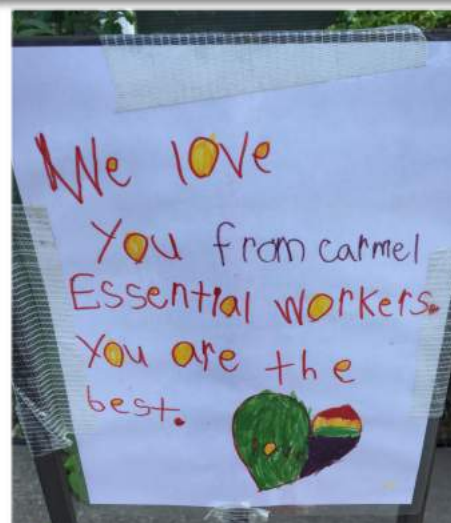 We love
You from carmel
Essential workers.
You are the
best.